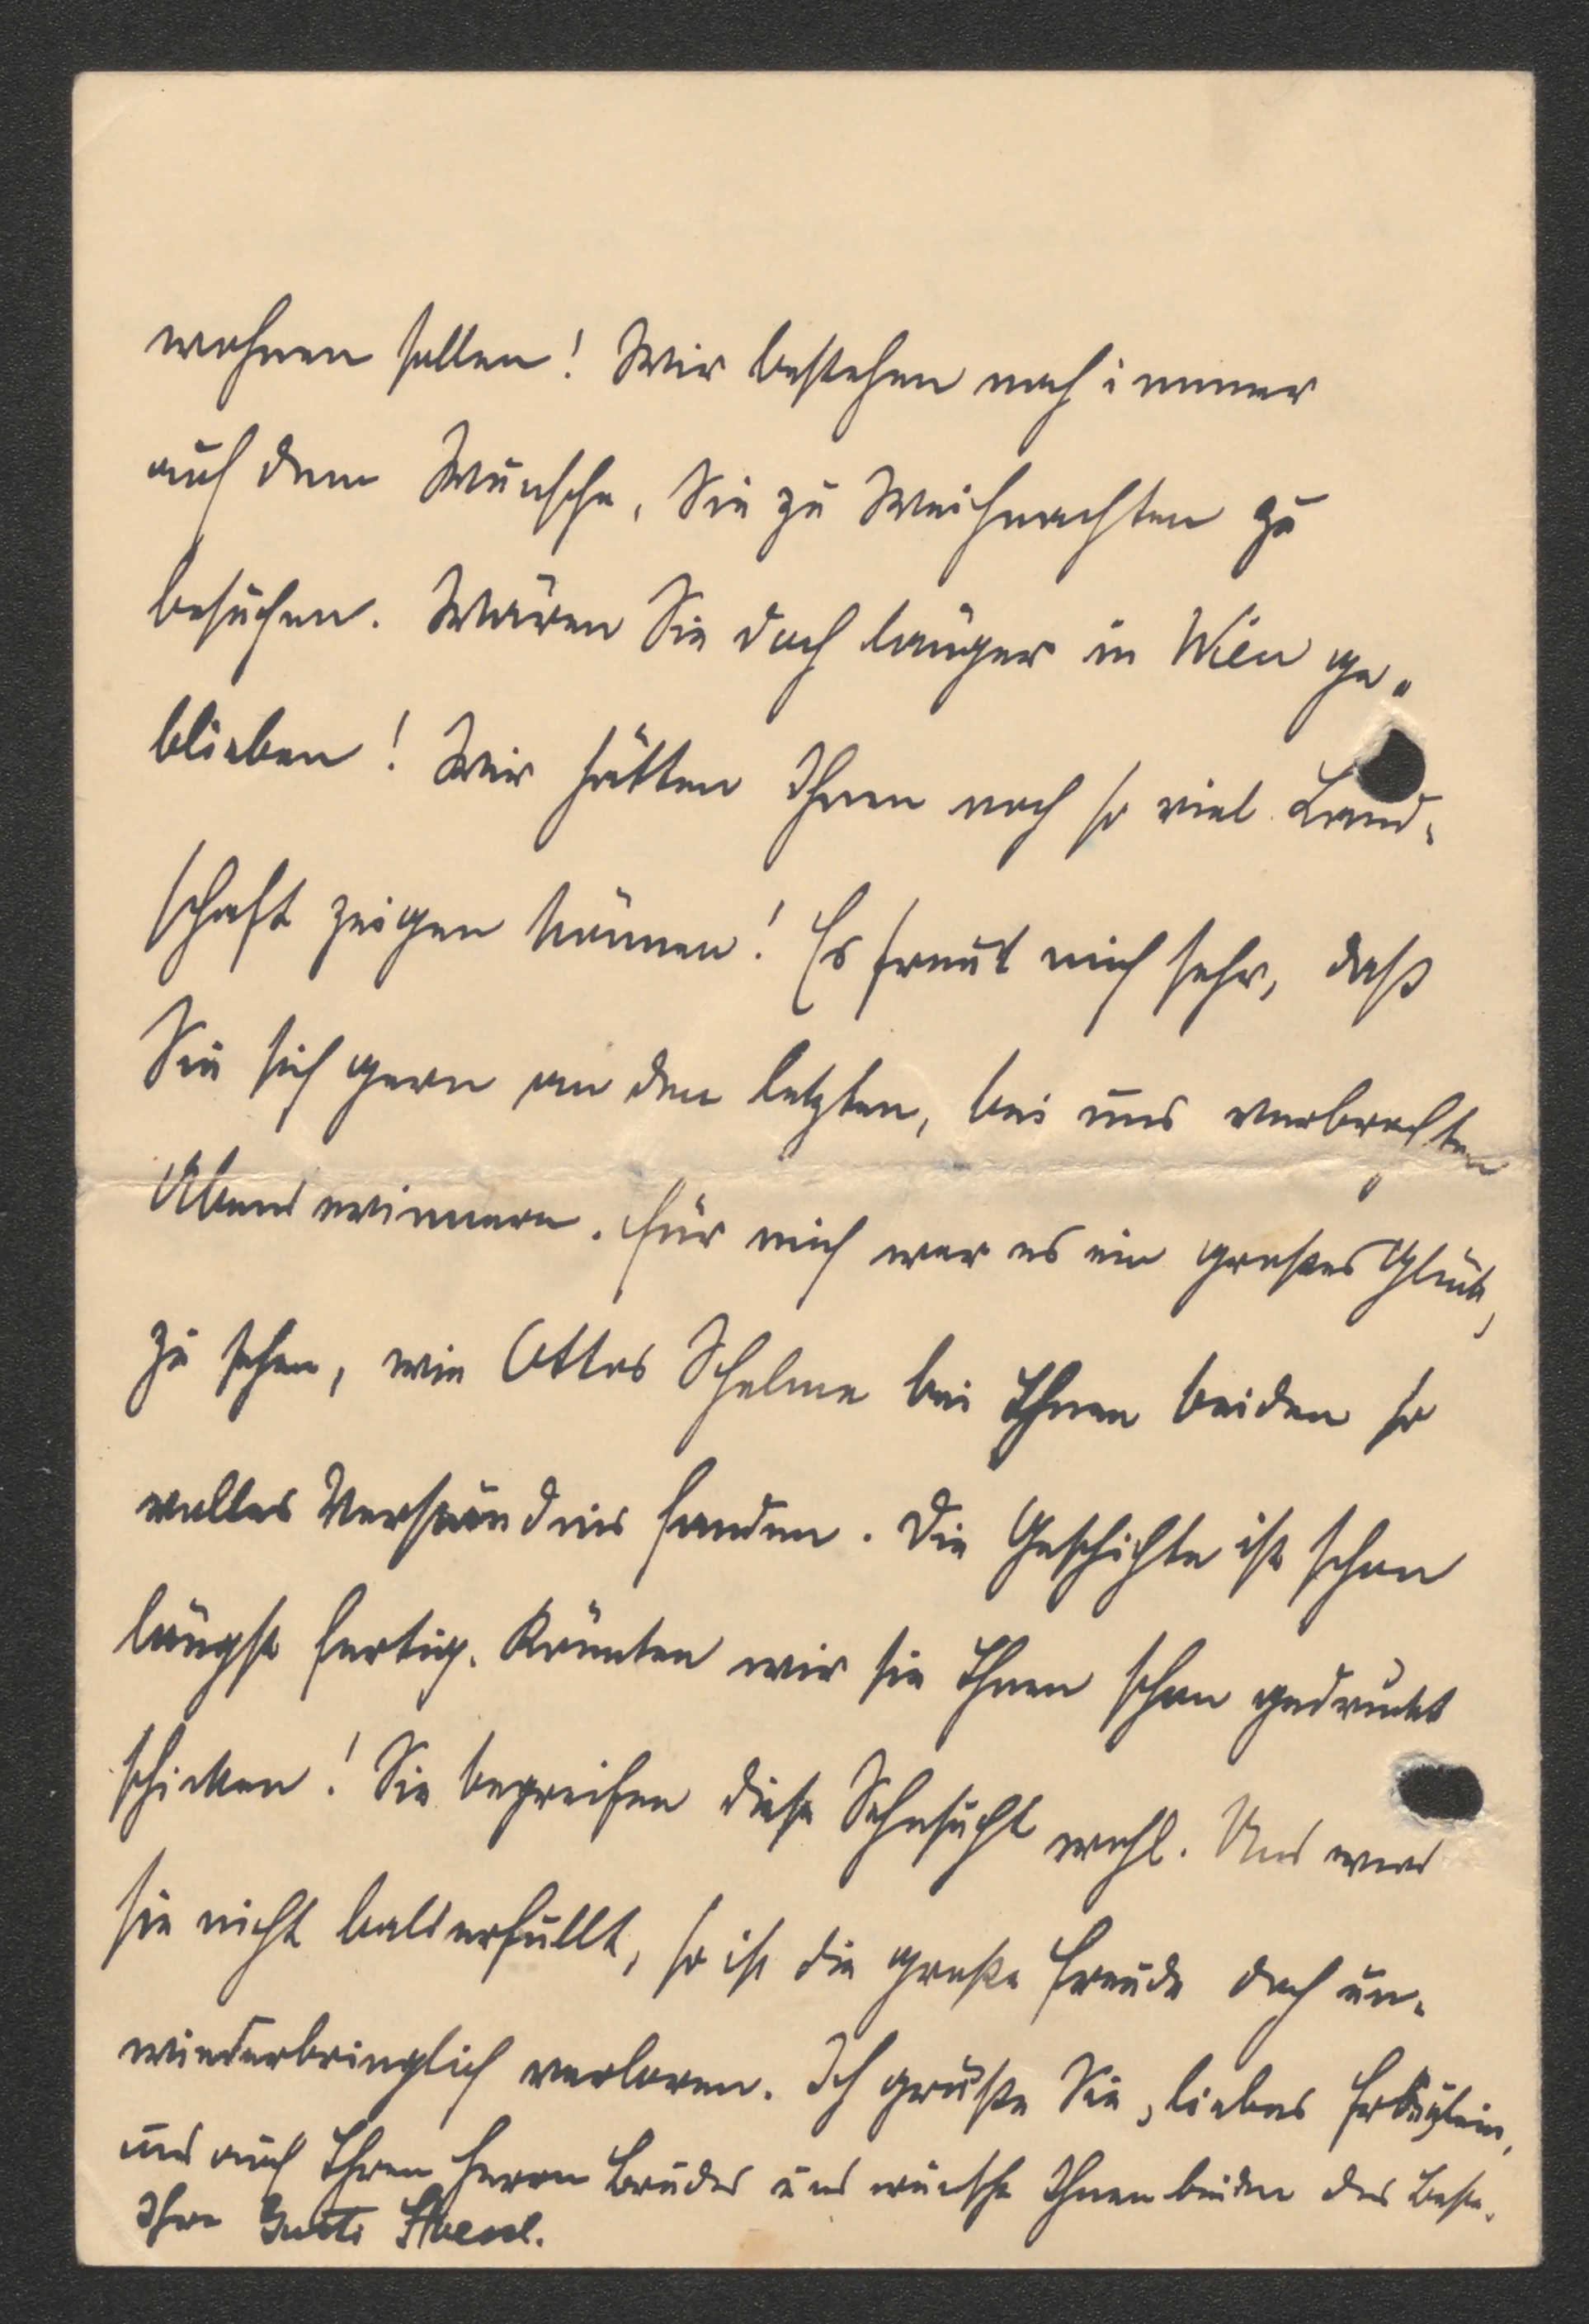 wohnen sollen! Wir bestehen noch immer
auf dem Wunsche, Sie zu Weihnachten zu
besuchen. Wären Sie doch länger in Wien ge-
blieben! Wir hätten Ihnen noch so viel Land-
schaft zeigen können! Es freut mich sehr, daß
Sie sich gern an den letzten, bei uns verbrachten
Abend erinnern. Für mich war es ein großes Glück,
zu sehen, wie Ottos Schelme bei Ihnen beiden so
volles Verständnis fanden. Die Geschichte ist schon
längst fertig. Könnten wir sie Ihnen schon gedruckt
schicken! Sie begreifen diese Sehnsucht wohl. Und wird
sie nicht bald erfüllt, so ist die große Freude doch un-
wiederbringlich verloren. Ich grüße Sie, liebes Fräulein,
und auch Ihren Herrn Bruder und wünsche Ihnen beiden das Beste.
Ihre Gusti